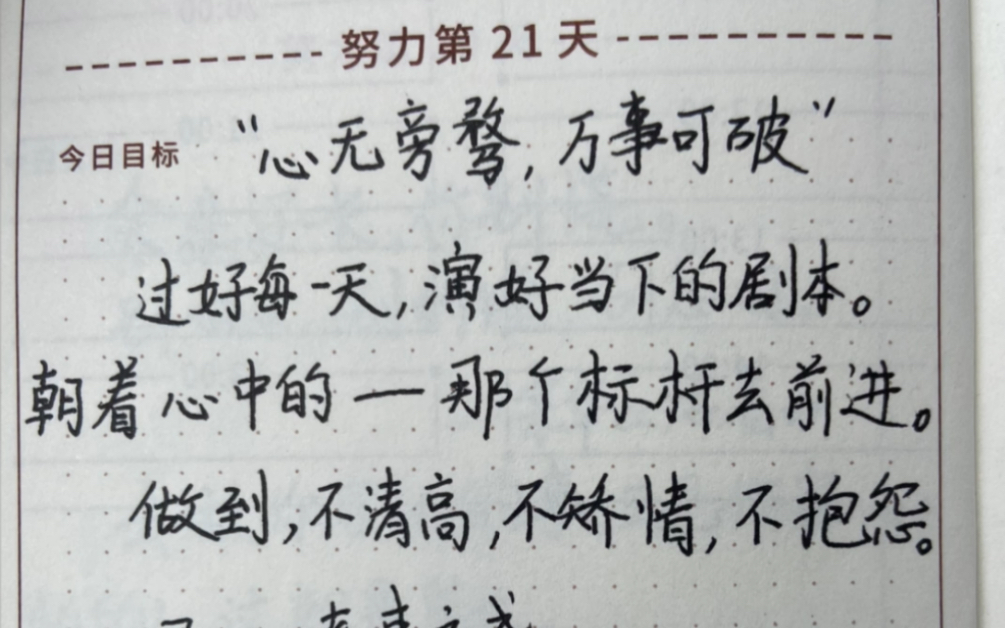 努力第 21 天
今日目标 “心无旁骛,万事可破”
过好每一天,演好当下的剧本。
朝着心中的 — 那个标杆去前进。
做到,不清高,不矫情,不抱怨。